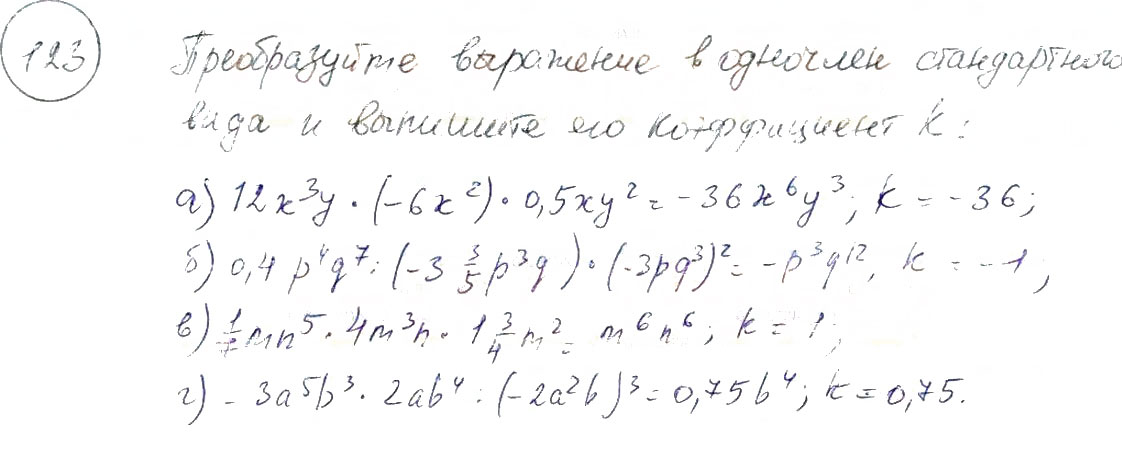 123 Преобразуйте выражение в одночлен стандартного
вида и выпишите его коэффициент k:
а) 12x³y · (-6x²) · 0,5xy² = -36x⁶y³; k = -36;
б) 0,4 p⁴q⁷ : (-3 3/5 p³q) · (-3pq³)² = -p³q¹², k = -1;
в) 1/7 mn⁵ · 4m³n · 1 3/4 m² = m⁶n⁶; k = 1;
г) -3a⁵b³ · 2ab⁴ : (-2a²b)³ = 0,75b⁴; k = 0,75.